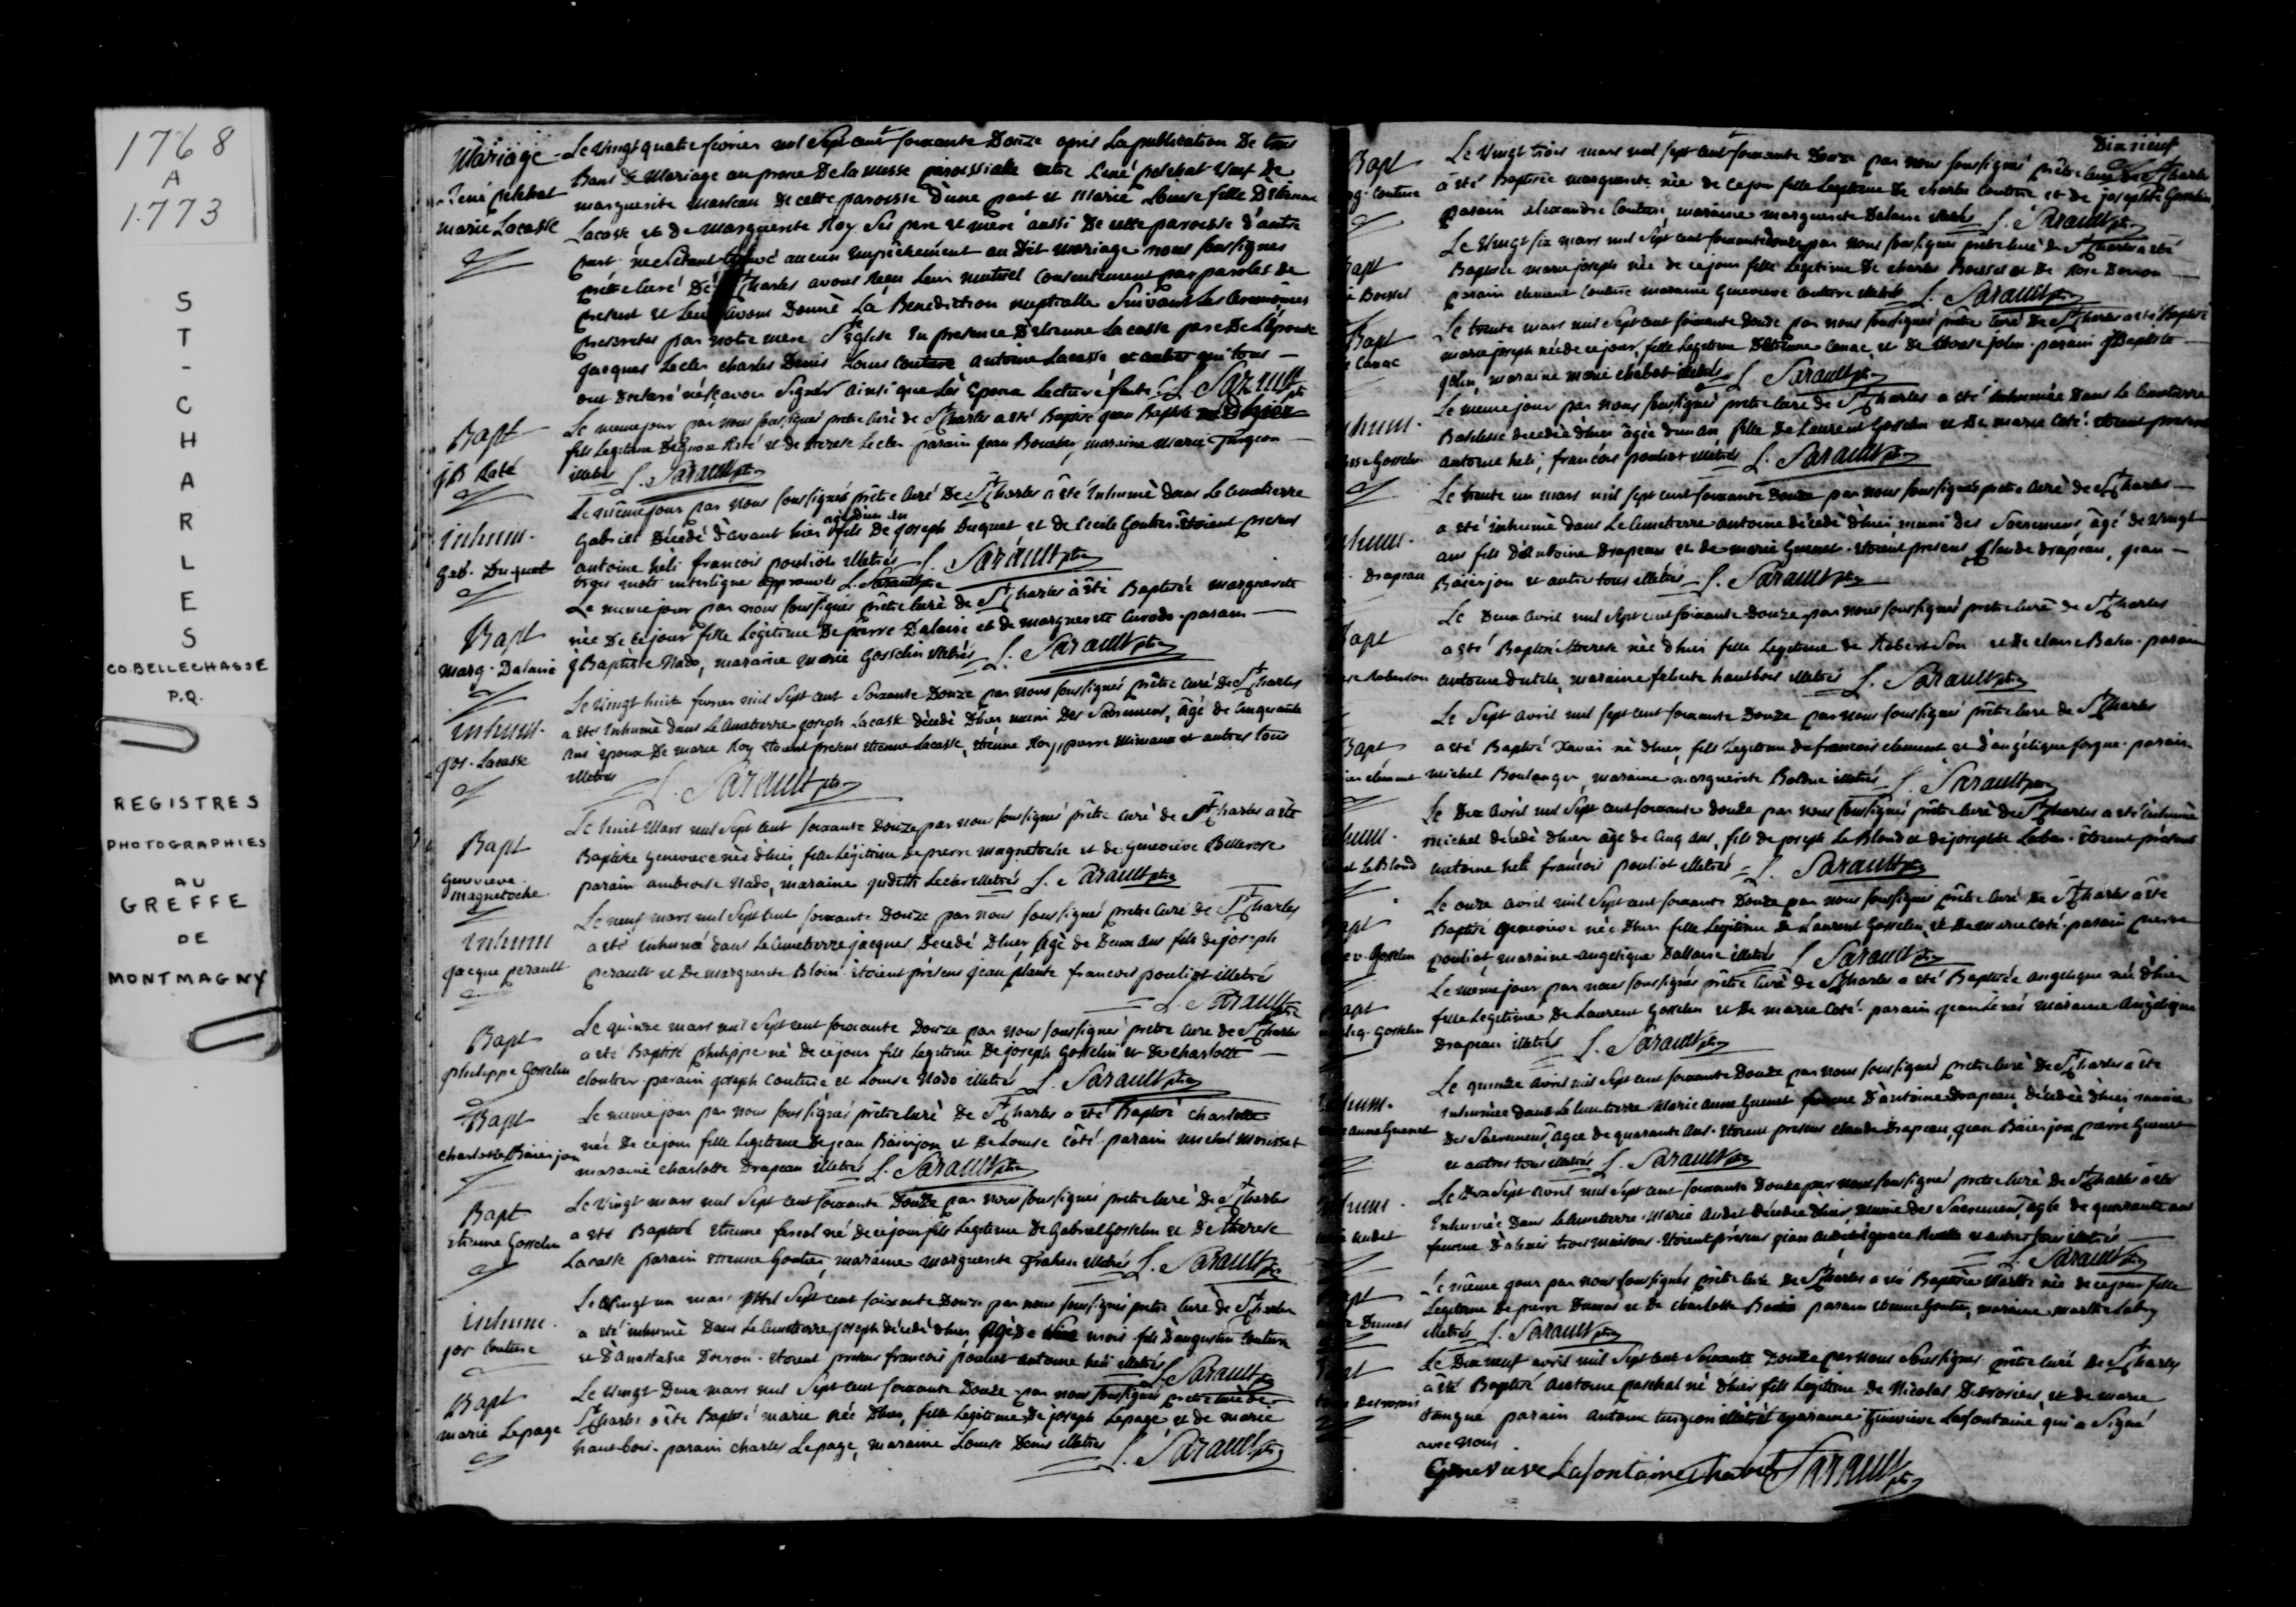 1768
A
1773
ST-CHARLES
CO. BELLECHASSE
P.Q.
REGISTRES
PHOTOGRAPHIES
AU
GREFFE
DE
MONTMAGNY
Mariage
René pelchat
marie Lacasse
Le vingt quatre fevrier mil Sept cent soixante Douze après La publication De trois
Bans De Mariage au prone De la messe paroissiale entre René pelchat veuf de
marguerite marseau de cette paroisse d'une part et Marie Louise fille D'Etienne
Lacasse et de Marguerite Roy Ses pere et mere aussi De cette paroisse d'autre
part ne s'etant trouvé aucun empêchement au Dit mariage nous soussignes
prêtre curé De St Charles avons reçu Leur mutuel consentement par paroles de
present et Leur avons Donné La Benediction nuptialle Suivant Les ceremonies
prescrites par notre mere Ste Eglise En presence D'etienne Lacasse pere De L'épouse
jacques Lecler charles Denis Louis Couture antoine Lacasse et autres qui tous
ont Declaré ne sçavoir Signer ainsi que Les Epoux Lecture faite L. Sarault ptre
Bapt
jB Roté
Le meme jour par nous soussignés prêtre curé de St Charles a été Baptisé jean Baptiste
fils Legitime De Roté et de therese Lecler parain jean Boucher, maraine Marie Turgeon
illetrés L. Sarault ptre
inhum.
Gab. Duquet
Le même jour par nous soussignés prêtre curé De St Charles a été Inhumé dans Le Cimetierre
agé d'un an
Gabriel Décédé d'avant hier fils De joseph Duquet et de Cecile Goutier. étoient presens
antoine héli francois pouliot illetrés L. Sarault ptre
trois mots interligne approuvés L. Sarault ptre
Bapt
Marg. Dalaire
Le meme jour par nous soussignés prêtre curé de St Charles a été Baptisée marguerite
née De ce jour fille Légitime De pierre Dalaire et de marguerite parain
j Baptiste Nado, maraine marie Gosselin illetrés L. Sarault ptre
inhum.
jos. Lacasse
Le vingt huit fevrier mil Sept cent Soixante Douze par nous soussignés prêtre curé De St Charles
a été Inhumé dans Le Cimetierre joseph Lacasse décedé D'hier muni Des Sacremens, agé de cinquante
ans époux De marie Roy étoient presens etienne Lacasse, etienne Roy, pierre et autres tous
illetrés L. Sarault ptre
Bapt
genevieve
magnetoche
Le huit Mars mil Sept cent soixante Douze par nous soussignés prêtre curé de St Charles a été
Baptisée Genevieve née d'hier, fille Légitime de pierre magnetoche et de Genevieve Bellerose
parain ambroise Nado, maraine judith Lecler illetrés L. Sarault ptre
inhum
jacque perault
Le neuf mars mil Sept cent soixante Douze par nous soussignés prêtre curé de St Charles
a été inhumé dans Le Cimetierre jacques Decedé D'hier, agé de Deux ans fils de joseph
perault et De marguerite Bloin étoient présens jean plante francois pouliot illetrés
L. Sarault ptre
Bapt
philippe Gosselin
Le quinze mars mil Sept cent soixante Douze par nous soussignés prêtre curé de St Charles
a été Baptisé philippe né de ce jour fils Legitime De joseph Gosselin et De charlotte
cloutier. parain joseph Couture et Louise Nado illetrés L. Sarault ptre
Bapt
charlotte Baierjon
Le meme jour par nous soussignés prêtre curé de St Charles a été Baptisé charlotte
née De ce jour fille Legitime De jean Baierjon et De Louise Côté. parain michel Morisset
maraine charlotte Drapeau illetrés L. Sarault ptre
Bapt
Etienne Gosselin
Le vingt mars mil Sept cent soixante Douze par nous soussignés prêtre curé De St Charles
a été Baptisé Etienne né de ce jour fils Legitime De Gabriel Gosselin et De therese
Lacasse parain Etienne Goutier, maraine marguerite illetrés L. Sarault ptre
inhum.
jos Couture
Le vingt un mars Mil Sept cent soixante Douze par nous soussignés prêtre curé de St Charles
a été inhumé Dans Le Cimetierre joseph décedé d'hier, agé de mois fils d'augustin Couture
et D'anastasie Dorron. étoient presens francois pouliot antoine heli illetrés L. Sarault ptre
Bapt
marie Lepage
Le vingt Deux mars mil Sept cent soixante Douze par nous soussignés prêtre curé de
St Charles a été Baptisé marie née D'hier, fille Legitime De joseph Lepage, et de marie
haut-bois. parain charles Lepage, maraine Louise Denis illetrés L. Sarault ptre
Dix neuf
Bapt
g. Couture
Le vingt trois mars mil sept cent soixante Douze par nous soussignés prêtre curé De St Charles
a été Baptisée marguerite née de ce jour fille Legitime De charles Couture et de josephte Gosselin
parain alexandre Couture, maraine marguerite Dalaire illetrés L. Sarault ptre
Bapt
Boissel
Le vingt six mars mil Sept cent soixante douze par nous soussignés prêtre curé de St Charles a été
Baptisée marie joseph née de ce jour fille Legitime De charles Boissel et De Rose Dorron
parain clement Couture maraine Genevieve Couture illetrés L. Sarault ptre
Bapt
Canac
Le trente mars mil Sept cent soixante douze par nous soussignés prêtre curé De St Charles a été Baptisé
marie joseph née de ce jour, fille Legitime D'Etienne Canac et de Louise jolin. parain j Baptiste
jolin, maraine Marie chabot illetrés L. Sarault ptre
inhum.
Gosselin
Le meme jour par nous soussignés prêtre curé de St Charles a été inhumée Dans Le Cimetierre
decedée d'hier agée d'un an, fille De Laurent Gosselin et De marie Coté. étoient presens
antoine heli, francois pouliot illetrés L. Sarault ptre
inhum.
Drapeau
Le trente un mars mil sept cent soixante Douze par nous soussignés prêtre curé de St Charles
a été inhumé dans Le Cimetierre antoine décedé d'hier muni des Sacremens âgé de vingt
ans fils d'antoine Drapeau et de marie Guenet. étoient presens Claude drapeau, jean
Baierjon et autres tous illetrés L. Sarault ptre
Bapt
Roberson
Le Deux avril mil Sept cent soixante Douze par nous soussignés prêtre curé de St Charles
a été Baptisé therese née d'hier fille Legitime de Roberson et De claire Bahu. parain
antoine dutile, maraine felicite hautbois illetrés L. Sarault ptre
Bapt
clément
Le Sept avril mil sept cent soixante Douze par nous soussignés prêtre curé de St Charles
a été Baptisé Xavier né d'hier, fils Legitime de francois clement et d'angélique forgue. parain
michel Boulanger, maraine marguerite Bolduc illetrés L. Sarault ptre
inhum.
Le Blond
Le Dix avril mil Sept cent soixante douze par nous soussignés prêtre curé De St Charles a été inhumé
michel décedé d'hier age de cinq ans, fils de joseph Le Blond et de josephte. étoient présens
antoine heli francois pouliot illetrés L. Sarault ptre
Bapt
Gosselin
Le onze avril mil Sept cent soixante Douze par nous soussignés prêtre curé De St Charles a été
Baptisé Genevieve née D'hier fille Legitime de Laurent Gosselin, et De marie Coté. parain pierre
pouliot, maraine angelique Dallaire illetrés L. Sarault ptre
Bapt
Gosselin
Le meme jour par nous soussignés prêtre curé de St Charles a été Baptisée angelique née d'hier
fille Legitime De Laurent Gosselin et De marie Coté. parain jean maraine angelique
Drapeau illetrés L. Sarault ptre
inhum.
anne Guenet
Le quinze avril mil Sept cent soixante Douze par nous soussignés prêtre curé De St Charles a été
inhumée dans Le Cimetierre Marie anne Guenet femme D'antoine Drapeau décedée d'hier munie
Des Sacremens, agée de quarante ans. étoient presens claude Drapeau, jean Baierjon, pierre Guenet
et autres tous illetrés L. Sarault ptre
inhum.
Audet
Le Dix Sept avril mil Sept cent soixante Douze par nous soussignés prêtre curé De St Charles a été
Inhumée Dans Le Cimetierre Marie Audet décedée d'hier munie Des Sacremens, agée de quarante ans
femme D'alexis trois maisons. étoient présens jean Audet ignace et autres tous illetrés
L. Sarault ptre
Bapt
Dumas
Le même jour par nous soussignés prêtre curé de St Charles a été Baptisée Marthe née de ce jour fille
Legitime De pierre Dumas et De charlotte parain etienne Goutier, maraine marthe
illetrés L. Sarault ptre
Bapt
Desrosiers
Le Dix neuf avril mil Sept cent Soixante Douze par nous Soussignés prêtre curé De St Charles
a été Baptisé antoine paschal né d'hier fils Légitime de Nicolas Desrosiers et de marie
Tangue parain antoine turgeon illetré maraine Genevieve Lafontaine qui a Signé
avec nous
Genevieve Lafontaine Sarault ptre